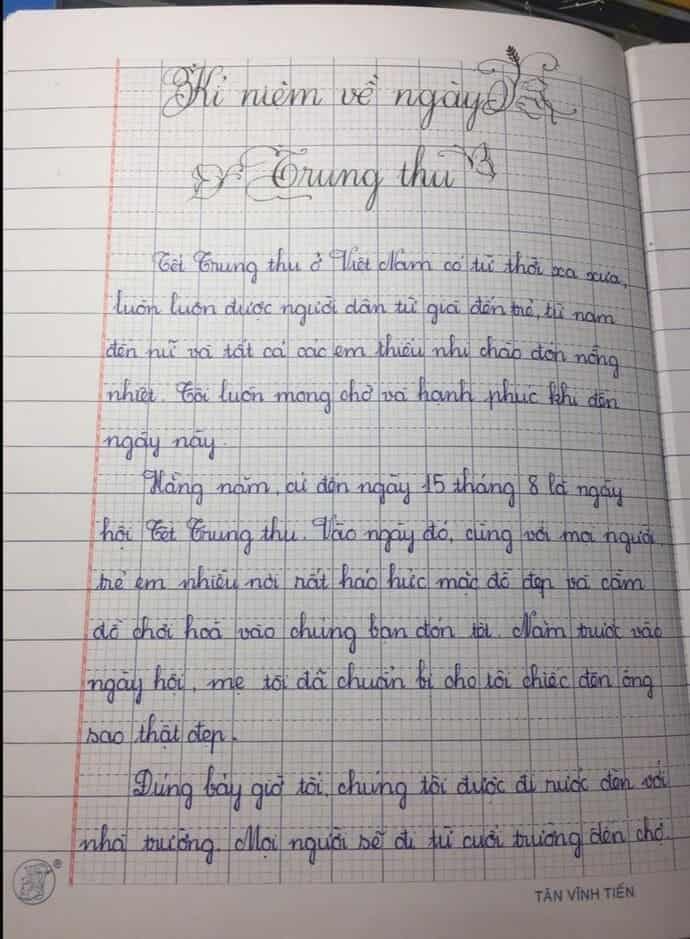 Kỉ niệm về ngày
Trung thu
Tết Trung thu ở Việt Nam có từ thời xa xưa,
luôn luôn được người dân từ già đến trẻ, từ nam
đến nữ và tất cả các em thiếu nhi chào đón nồng
nhiệt. Tôi luôn mong chờ và hạnh phúc khi đến
ngày này.
Hằng năm, cứ đến ngày 15 tháng 8 là ngày
hội Tết Trung thu. Vào ngày đó, cùng với mọi người,
trẻ em nhiều nơi rất háo hức mặc đồ đẹp và cầm
đồ chơi hoà vào chúng bạn đón tết. Năm trước vào
ngày hội, mẹ tôi đã chuẩn bị cho tôi chiếc đèn ông
sao thật đẹp.
Đúng bảy giờ tối, chúng tôi được đi rước đèn với
nhà trường. Mọi người sẽ đi từ cuối trường đến chợ
TÂN VĨNH TIẾN